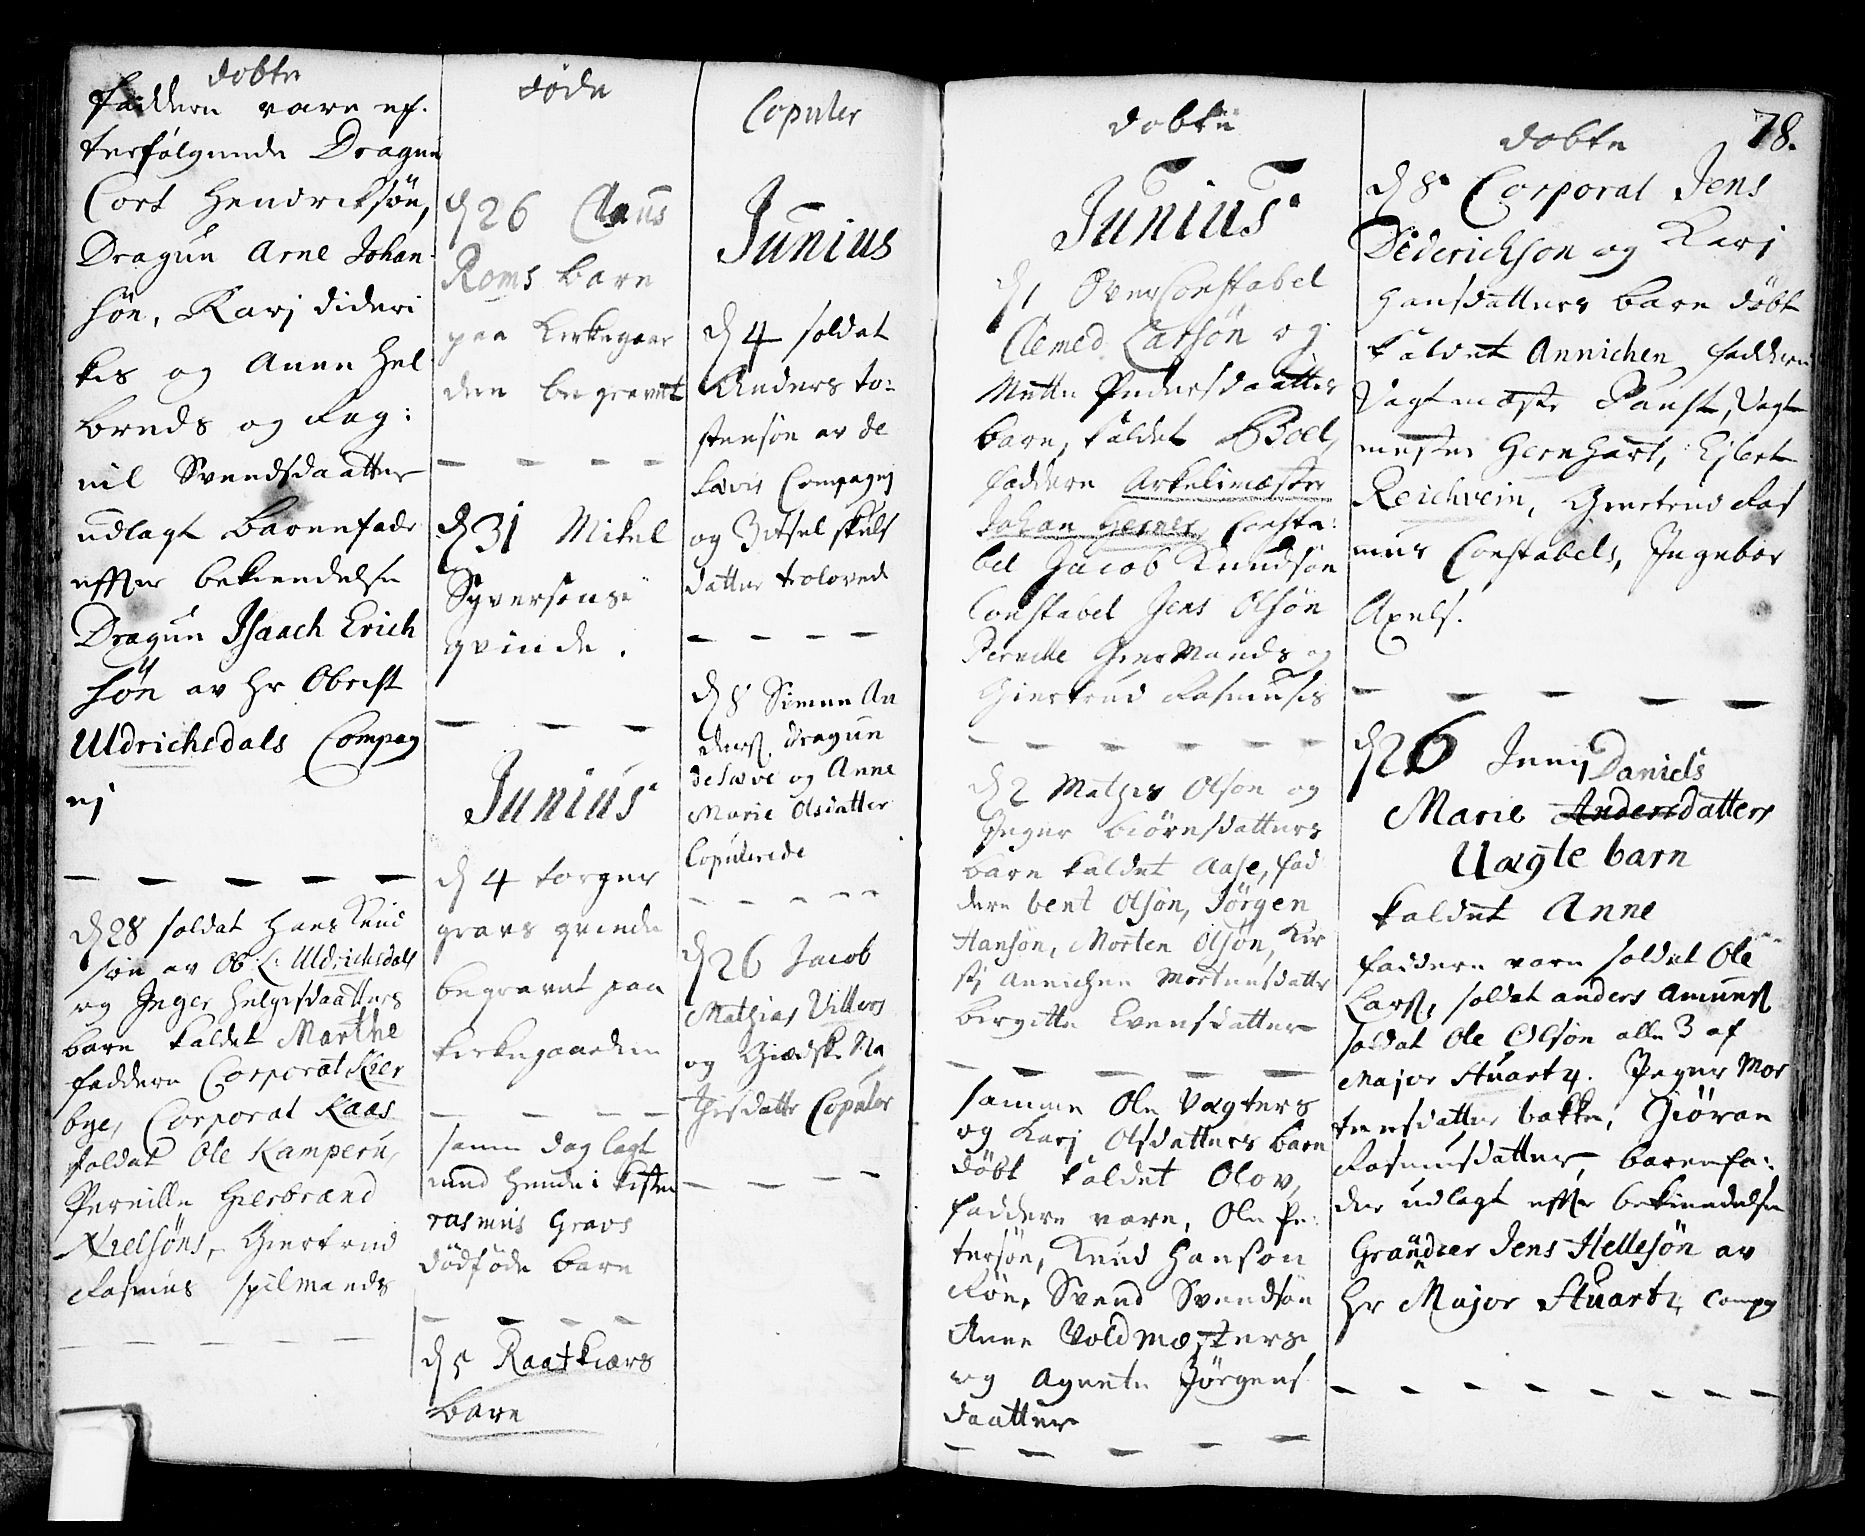 dobte
faddere vare ef-
terfølgende Dragun
Cort Hendricksøn,
Dragun Arne Johan-
søn, Karj dideri
kis og Anne Hel
breds og Rag:
nil Svendsdaatter
udlagt barnefader
effter bekiendelse
Dragun Isaach Erich
søn av Hr Obrist
Uldrichsdals Compag
nj
d 28 soldat Hans Knud
søn av Ob: L: Uldrichsdals
og Inger Helgesdaatters
barn kaldet Marthe
faddere Corporal Kier
bye, Corporal Kaas
soldat Ole Kamperu,
Pernille Giesbrænd
Nielsøns, Giertrud
Rasmus spilmands
døde
d 26 Claus
Roms barn
paa Kirkegaar
den begravet
d 31 Mikel
Syversøns
qvinde.
Junius
d 4 torger
gravs qvinde
begravet paa
kirkegaarden
samme dag lagt
ned hende i kisten
rasmus Gravs
dødføde barn
d 5 Raatkiærs
barn
Copuler
Junius
d 4 soldat
Anders to-
stensøn av de
Sævis Compagnj
og Zitsel skels
datter troloved
d 8 Simen An
ders. dragun
de Sæve og Anne
Marie Olsdatter
Copulerede
d 26 Jacob
Mathias Villers
og Giedske Na
Jersdatter Copuler
dobte
Junius
d 1 OverConstabel
Clemed Larsøn og
Mette Pedersdaatters
barn, kaldet Boel,
faddere Arkelimæster
Johan Gerner, Consta:
bel Jacob Knudsøn
Constabel Jens Olsøn
Pernille Giermands og
Giertrud Rasmusis
d 2 Mathis Olson og
Inger biørnsdatters
barn kaldet Aase, fad
dere bent Olsøn, Jørgen
Hansøn, Morten Olsøn, Kir
sti Annichen Mortensdatter
birgitte Evensdatter
samme Ole Vægters
og Karj Olsdatters barn
døbt kaldet Olov,
faddere vare, Ole Pe
tersøn, Knud Hanson
Røn, Svend Svendsøn
Anne Voldmæsters
og Agnete Jørgens
daatter
78.
dobte
d 8 Corporal Jens
Dederichson og Karj
Hansdatters barn døbt
kaldet Annichen faddere
Vagtmæste Paust, Vagt
mester Gernhart, Ejlert
Reichvein, Giertrud Ras
mus Constabels, Ingebor
Axels.
d 26 Jenj Daniels
Marie Andersdatters
Uægte barn
kaldet Anne
faddere vare soldat Ole
Lars, soldat anders Amunds
soldat Ole Olsøn alle 3 af
Major Stuartz. Inger Mor
tensdatter bakke, Giøran
Rasmusdatter, barnefa:
der udlagt effter bekiendelse
Granderer Jens Hellesøn av
Hr Major Stuartz Compg